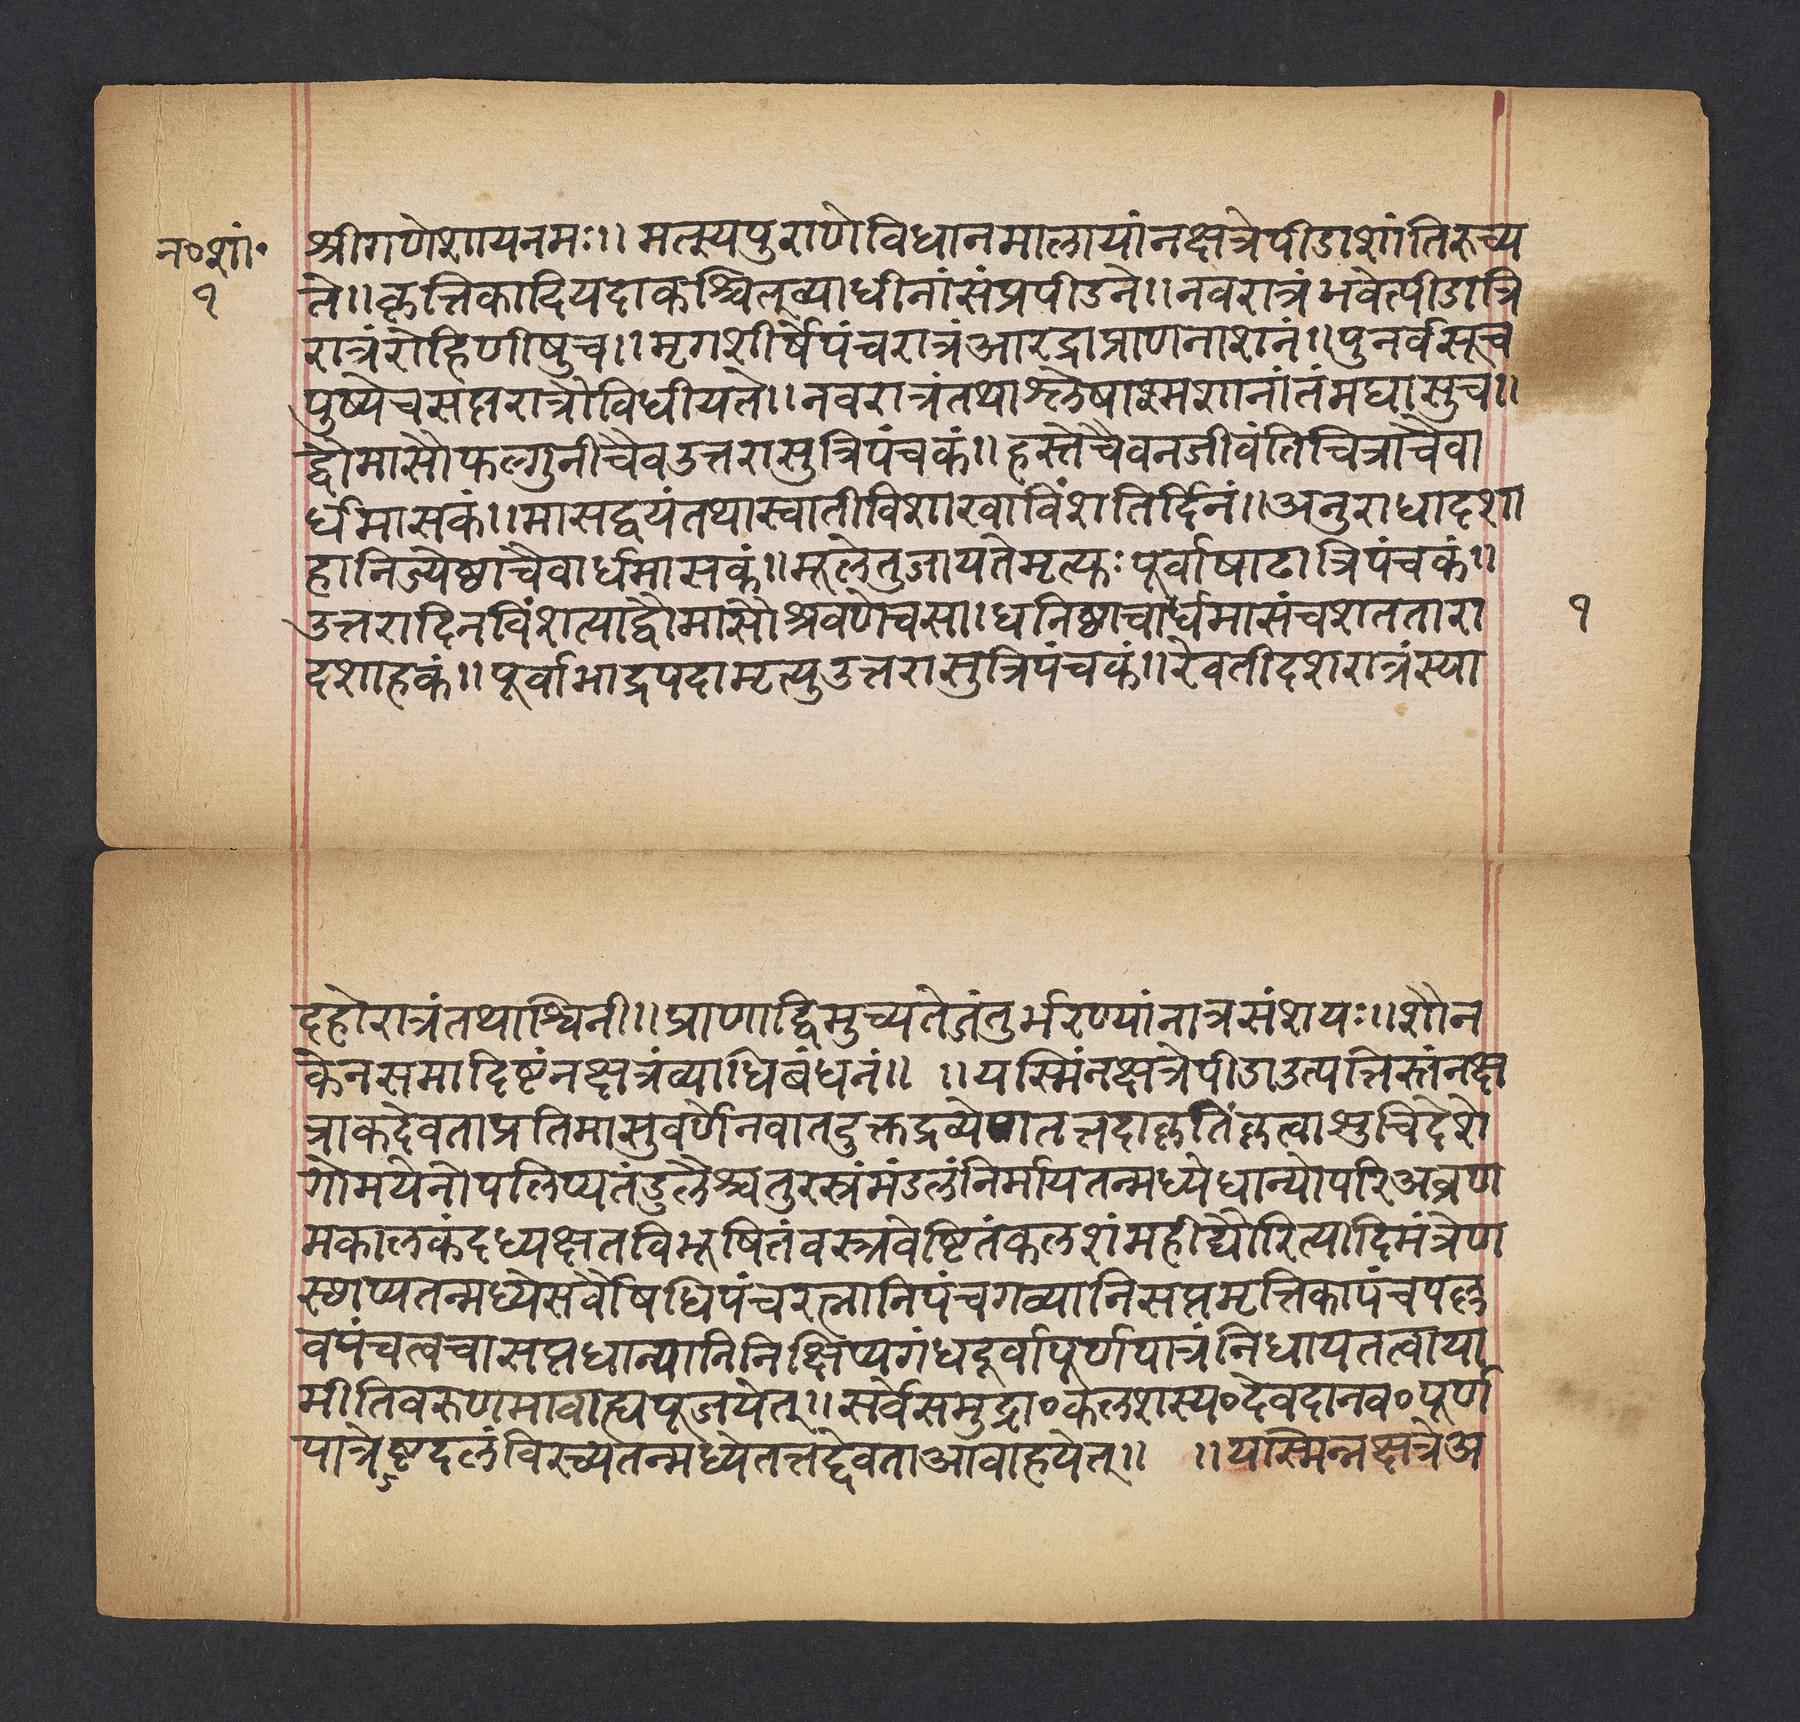 न०शां०
१
श्रीगणेशायनमः।। मत्स्यपुराणेविधानमालायांनक्षत्रेपीडाशांतिरुच्य
ते।।कृत्तिकादियदाकश्चित्व्याधीनांसंप्रपीडने।।नवरात्रंभवेत्पीडात्रि
रात्रंरोहिणीषुच।।मृगशीर्षेपंचरात्रंआरद्राप्राणनाशनं।।पुनर्वसूच
पुष्येचसप्तरात्रोविधीयते।।नवरात्रंतथाश्लेषाश्मशानांतंमघासुच।।
द्वौमासौफल्गुनीचैवउत्तरासुत्रिपंचकं।।हस्तेचैवनजीवंतिचित्राचैवा
र्धमासकं।।मासद्वयंतथास्वातीविशाखाविंशतिर्दिनं।।अनुराधादशा
हानिज्येष्ठाचैवार्धमासकं।।मूलेतुजायतेमृत्युः पूर्वाषाढात्रिपंचकं।।
उत्तरादिनविंशत्याद्वौमासौश्रवणेचसा।धनिष्ठाचार्धमासंचशततारा
१
दशाहकं।।पूर्वाभाद्रपदामृत्युउत्तरासुत्रिपंचकं।।रेवतीदशरात्रंस्या
दहोरात्रंतथाश्विनी।।प्राणाद्विमुच्यतेजंतुर्भरण्यांनात्रसंशयः।।शौन
केनसमादिष्टंनक्षत्रंव्याधिबंधनं।। ।।यस्मिंनक्षत्रेपीडाउत्पत्तिस्तंनक्ष
त्राकदेवताप्रतिमासुवर्णेनवातदुक्तद्रव्येणतत्तदाकृतिंकृत्वाशुचिदेशे
गोमयेनोपलिप्यतंडुलैश्चतुरस्रंमंडलंनिर्मायतन्मध्येधान्योपरिअव्रण
मकालकंदध्यक्षतविभूषितंवस्त्रवेष्टितंकलशंमहीद्यौरित्यादिमंत्रेण
स्थाप्यतन्मध्येसर्वौषधिपंचरत्नानिपंचगव्यानिसप्तमृत्तिकापंचपल्ल
वपंचत्वचासप्तधान्यानिनिक्षिप्यगंधदूर्वापूर्णपात्रंनिधायतत्वाया
मीतिवरुणमावाह्यपूजयेत्।।सर्वेसमुद्रा०कलशस्य०देवदानव०पूर्ण
पात्रेऽष्टदलंविरच्यतन्मध्येतत्तद्देवताआवाहयेत्।। ।।यस्मिन्नक्षत्रेअ